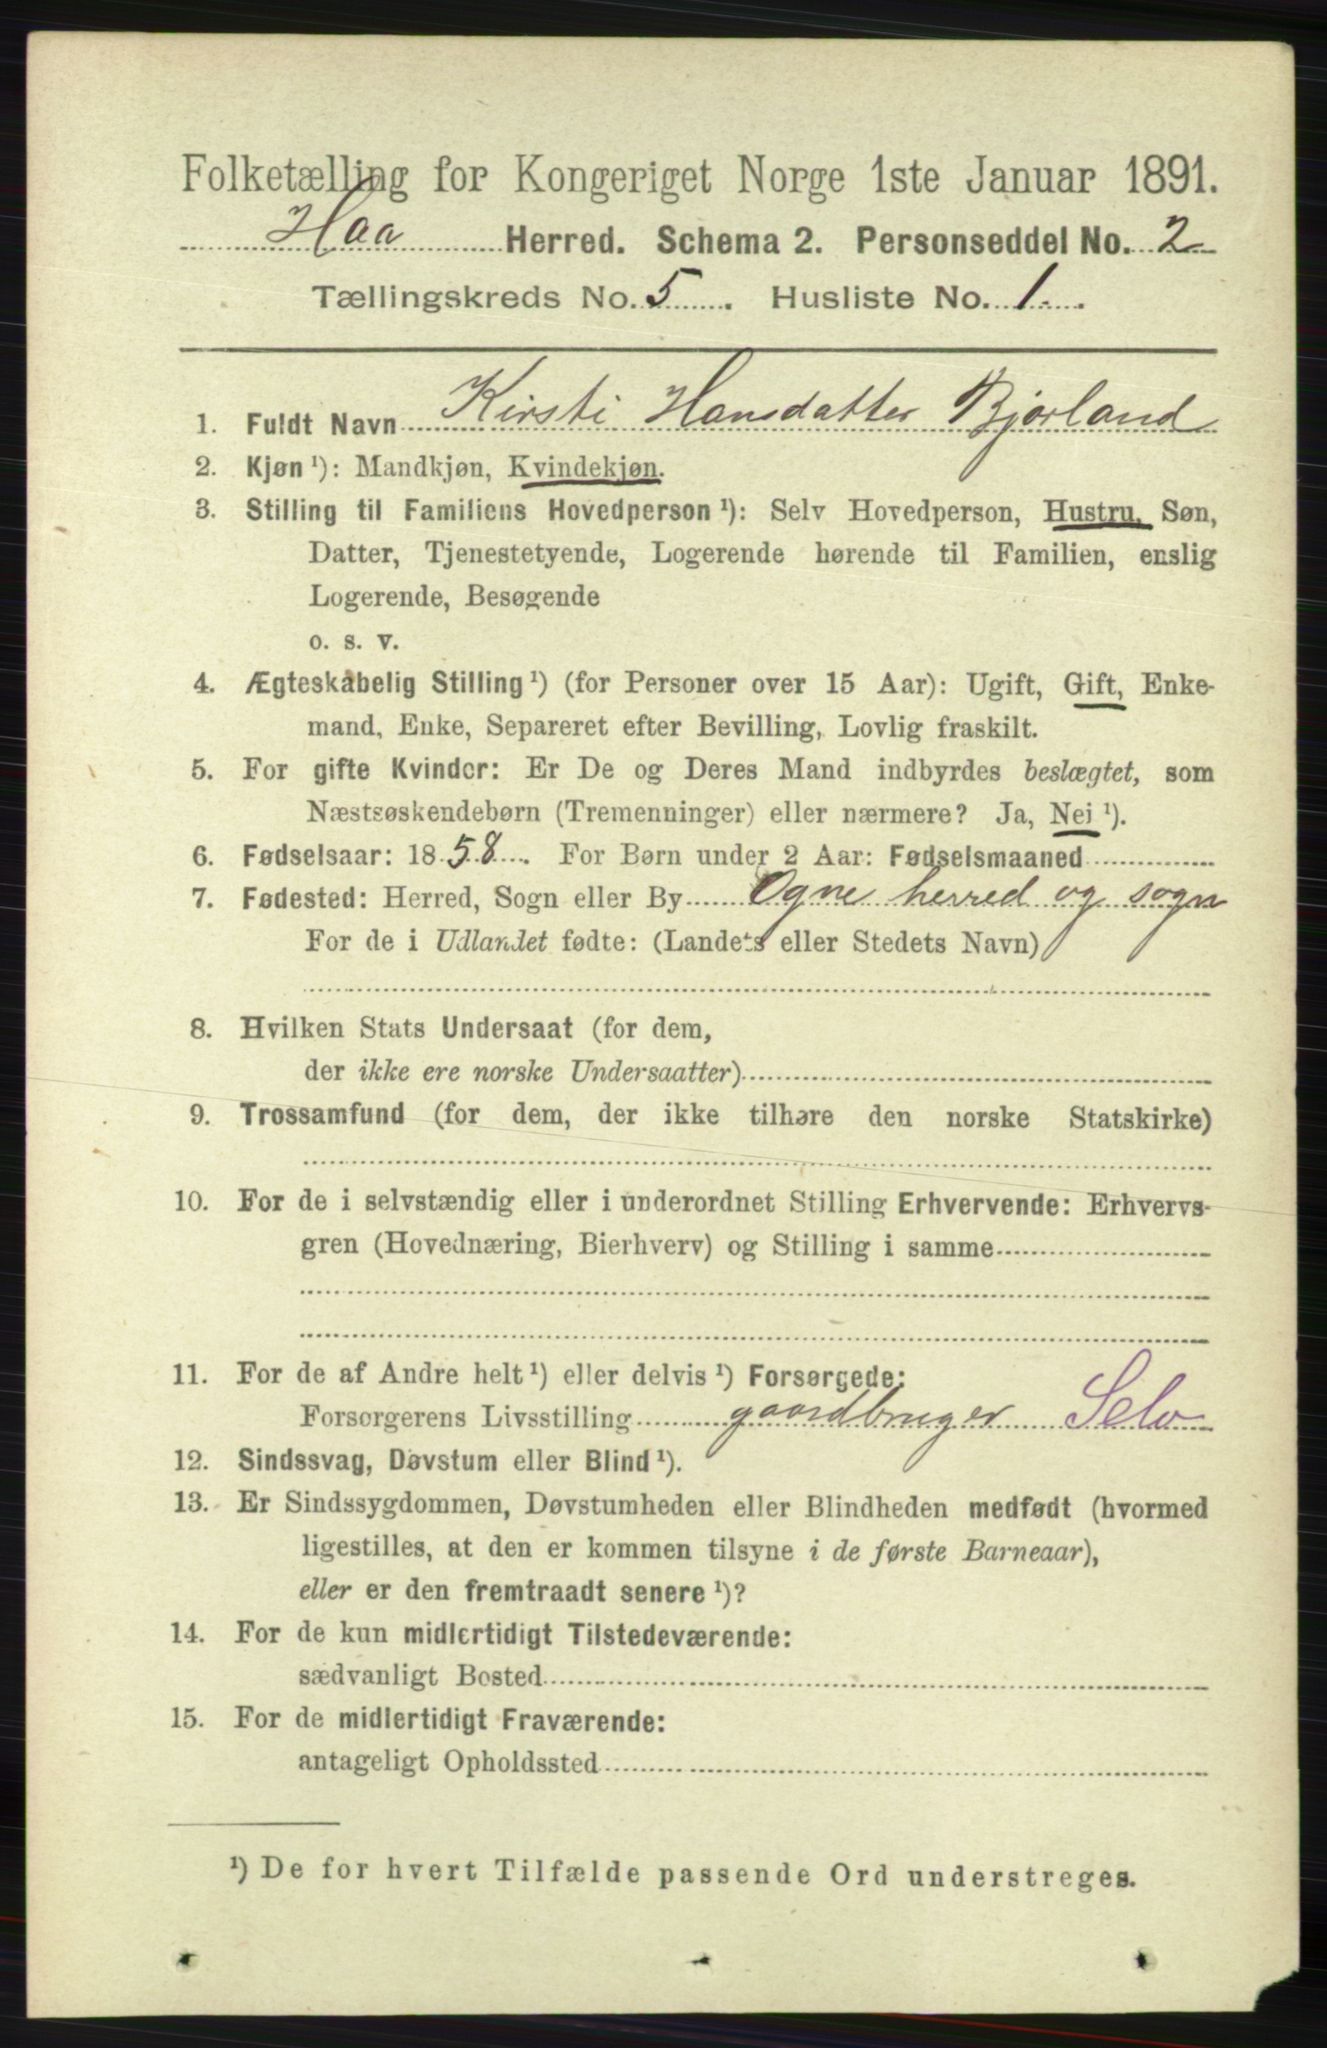 Folketælling for Kongeriget Norge 1ste Januar 1891.
Haa Herred. Schema 2. Personseddel No. 2
Tællingskreds No. 5. Husliste No. 1.
1. Fuldt Navn Kirsti Hansdatter Bjorland
2. Kjøn ¹): Mandkjøn, Kvindekjøn.
3. Stilling til Familiens Hovedperson ¹): Selv Hovedperson, Hustru, Søn,
Datter, Tjenestetyende, Logerende hørende til Familien, enslig
Logerende, Besøgende
o. s. v.
4. Ægteskabelig Stilling ¹) (for Personer over 15 Aar): Ugift, Gift, Enke-
mand, Enke, Separeret efter Bevilling, Lovlig fraskilt.
5. For gifte Kvinder: Er De og Deres Mand indbyrdes beslægtet, som
Næstsøskendebørn (Tremenninger) eller nærmere? Ja, Nei ¹).
6. Fødselsaar: 1858. For Børn under 2 Aar: Fødselsmaaned
7. Fødested: Herred, Sogn eller By Ogne herred og sogn
For de i Udlandet fødte: (Landets eller Stedets Navn)
8. Hvilken Stats Undersaat (for dem,
der ikke ere norske Undersaatter)
9. Trossamfund (for dem, der ikke tilhøre den norske Statskirke)
10. For de i selvstændig eller i underordnet Stilling Erhvervende: Erhvervs-
gren (Hovednæring, Bierhverv) og Stilling i samme
11. For de af Andre helt ¹) eller delvis ¹) Forsørgede:
Forsørgerens Livsstilling gaardbruger Selv
12. Sindssvag, Døvstum eller Blind ¹).
13. Er Sindssygdommen, Døvstumheden eller Blindheden medfødt (hvormed
ligestilles, at den er kommen tilsyne i de første Barneaar),
eller er den fremtraadt senere ¹)?
14. For de kun midlertidigt Tilstedeværende:
sædvanligt Bosted
15. For de midlertidigt Fraværende:
antageligt Opholdssted
¹) De for hvert Tilfælde passende Ord understreges.